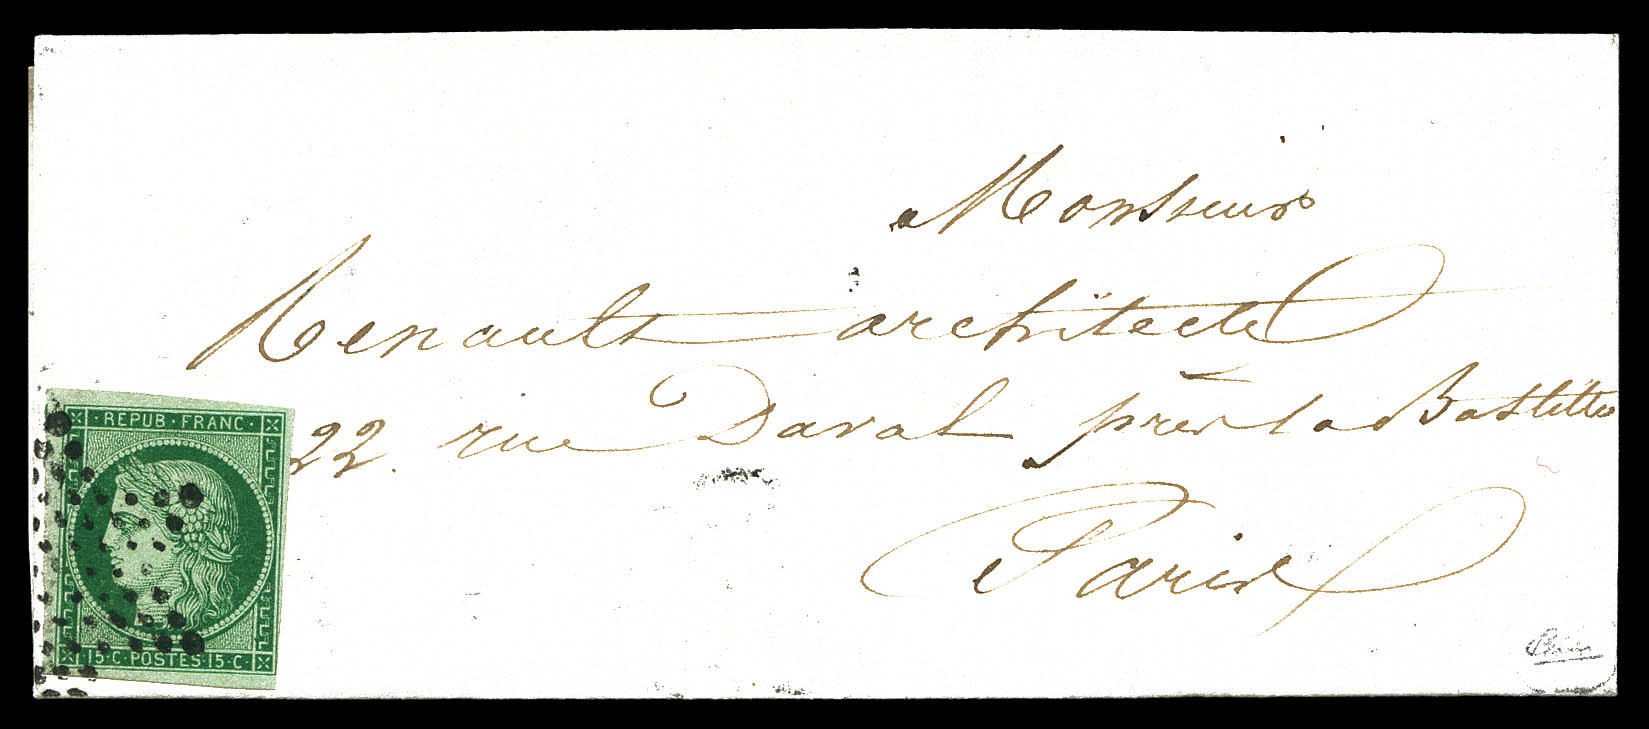 Monsieur
Renault architecte
22. rue Daval près la Bastille
Paris
· REPUB · FRANC ·
15 · C · POSTES · 15 · C ·